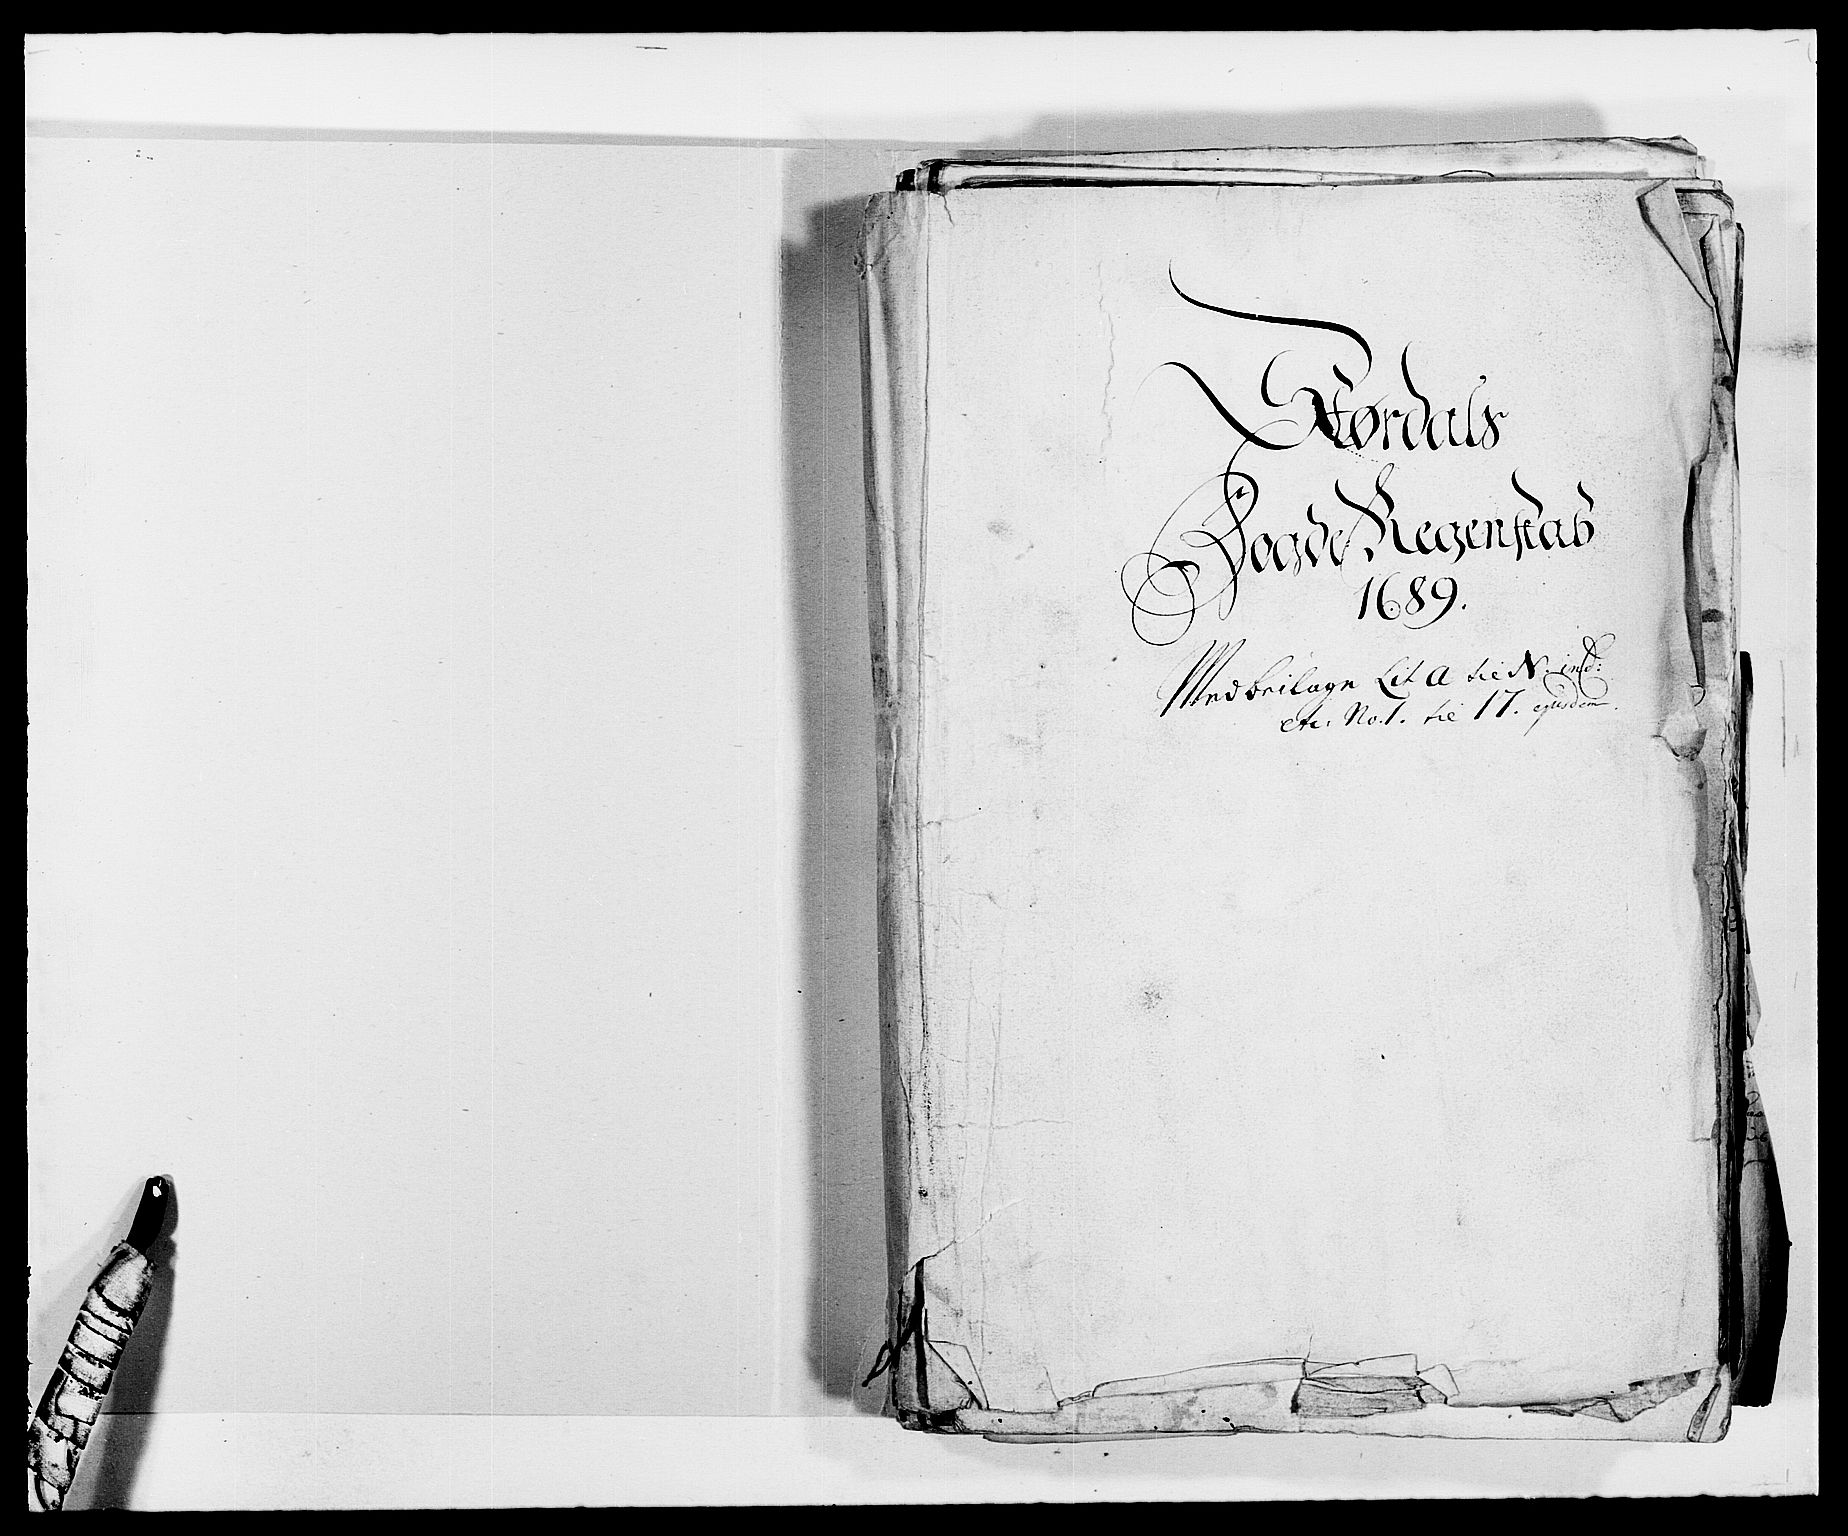 Størdals
Fogde Regenskab
1689.
Med beilage Lit A til N. incl:
etc. No. 1. til 17. ejusdem.